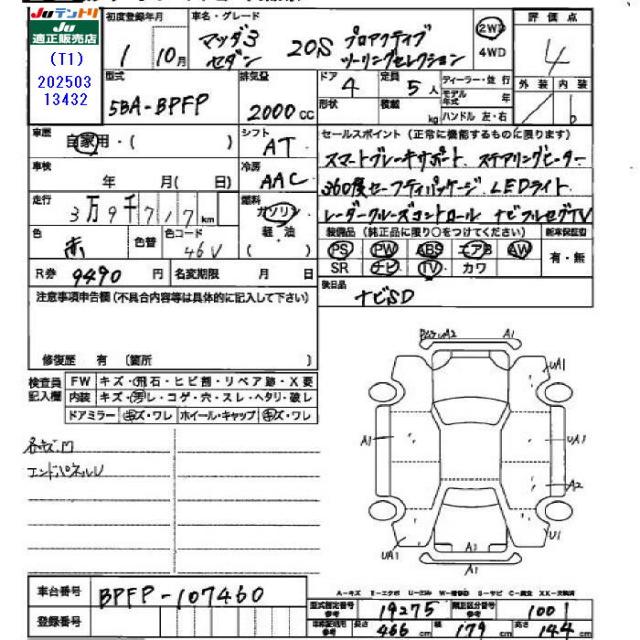 Juテントリ
Ju
適正販売店
(T1)
202503
13432
初度登録年月 車名・グレード 評価点
1 10月 マツダ3 セダン 20S プロアクティブ ツーリングセレクション 2WD 4WD 4
型式 排気量 ドア 定員 ディーラー・並行 外装 内装
5BA-BPFP 2000cc 4 5人 モデル年式 年
形状 積載 kg ハンドル 左・右 b
車歴 自家用・( ) シフト AT
セールスポイント (正常に機能するものに限ります)
スマートブレーキサポート ステアリングヒーター
車検 年 月( 日) 冷房 AAC
360度セーフティパッケージ LEDライト
走行 3万9千717km 燃料 ガソリン 軽・油 ( )
レーダークルーズコントロール ナビフルセグTV
色 赤 色替 色コード 46V
装備品 (純正品に限り○をつけてください) 新車保証書
PS PW ABS エアB AW 有・無
SR ナビ TV カワ
R券 9490円 名変期限 月 日
後日品 ナビSD
注意事項申告欄 (不具合内容等は具体的に記入して下さい)
修復歴 有 (箇所 )
検査員記入欄
FW キズ・飛石・ヒビ割・リペア跡・X要
内装 キズ・汚レ・コゲ・穴・スレ・ヘタリ・破レ
ドアミラー キズ・ワレ ホイール・キャップ キズ・ワレ
エンドパネルU
A1
UA1
A1
UA1
A2
A1
U1
UA1
A1
車台番号 BPFP-107460
登録番号
A-キズ E-エクボ U-凹み W-補修跡 S-サビ C-腐食 XX-交換済
型式指定番号 参考 19275 類別区分番号 参考 1001
長さ 466cm 幅 179cm 高さ 144cm